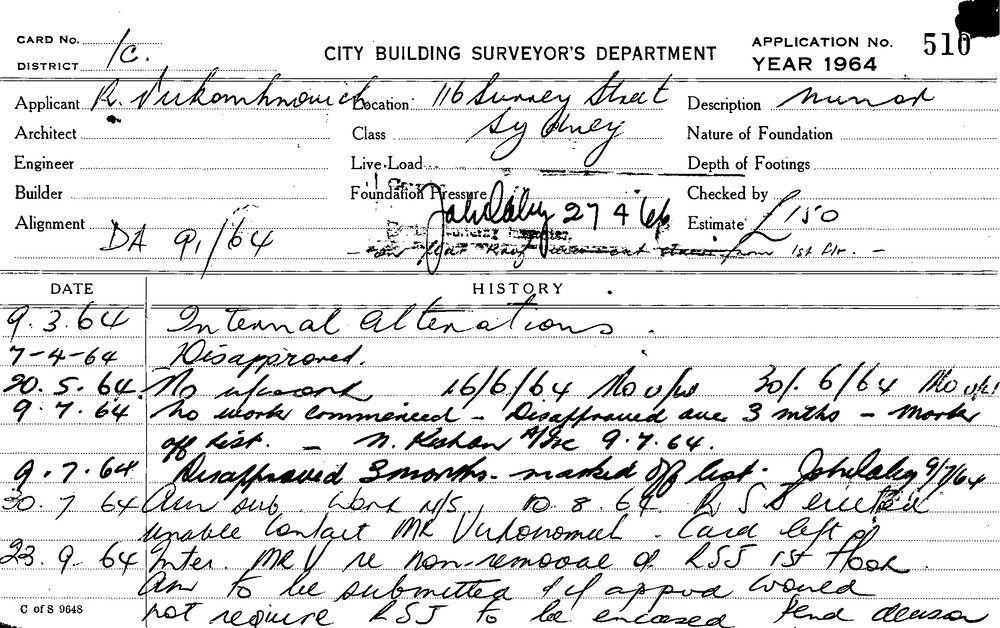 CARD No. 1C.
DISTRICT
CITY BUILDING SURVEYOR'S DEPARTMENT
APPLICATION No. 510
YEAR 1964
Applicant R. Location: 116 Surrey Street Description minor
Architect Class Sydney Nature of Foundation
Engineer Live Load Depth of Footings
Builder Foundation Pressure Checked by
John Daley 27 4 66
Alignment DA 91/64 Estimate £150
flat from 1st flr. -
DATE HISTORY
9.3.64 Internal alterations.
7-4-64 Disapproved.
20.5.64. No u/work 16/6/64 No u/w 30/. 6/64 No u/w
9.7.64 No work commenced - Disapproved over 3 mths - mark
off list. - N. 9.7.64.
9.7.64 Disapproved 3 months. marked off list. John Daley 9/7/64
30.7.64 Am sub. Work N/S. 10.8.64. R S J erected
unable contact MR Card left
23.9.64 Inter. MR V re non-removal of RSJ 1st floor
Am to be submitted & if appvd would
not require RSJ to be encased Pend
C of S 9648